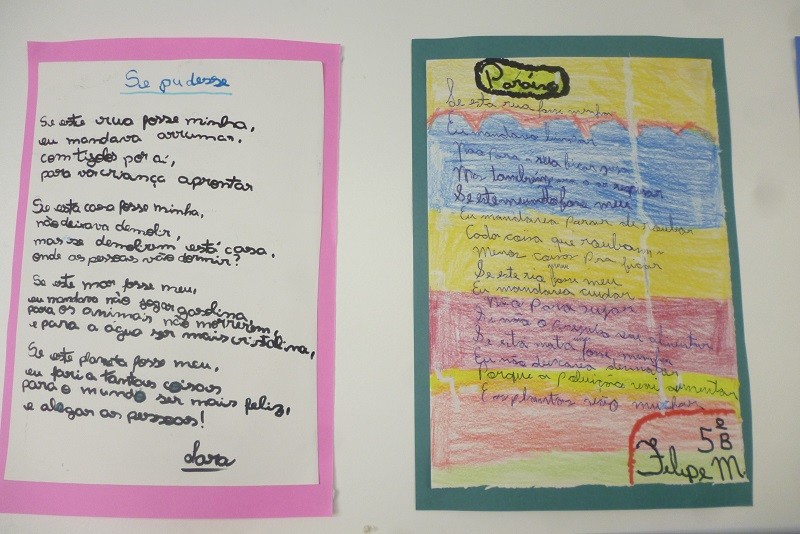 Se pudesse
Se esta rua fosse minha,
eu mandava arrumar,
com tijolos por aí,
para você criança aprontar
Se esta casa fosse minha,
não deixava demolir,
mas se demolirem está casa,
onde as pessoas vão dormir?
Se este mar fosse meu,
eu mandava não jogar gasolina
para os animais não morrerem,
e para a água ser mais cristalina,
Se este planeta fosse meu,
eu faria tantas coisas
para o mundo ser mais feliz,
e alegar as pessoas!
Lara
Paródia
Se esta rua fosse minha
Eu mandava
Não para a rua ficar
Mas também para o
Se este mundo fosse meu
Eu mandarea parar de roubar
Cada coisa que roubamos
Menos coisas pra ficar
Se este rio fosse meu
Eu mandarea cuidar
Não para sujar
Se não o vai aumentar
Se esta mata fosse minha
Eu não deixarea desmatar
Porque a poluição vai aumentar
E as plantas vão mudar
5º B
Felipe M.